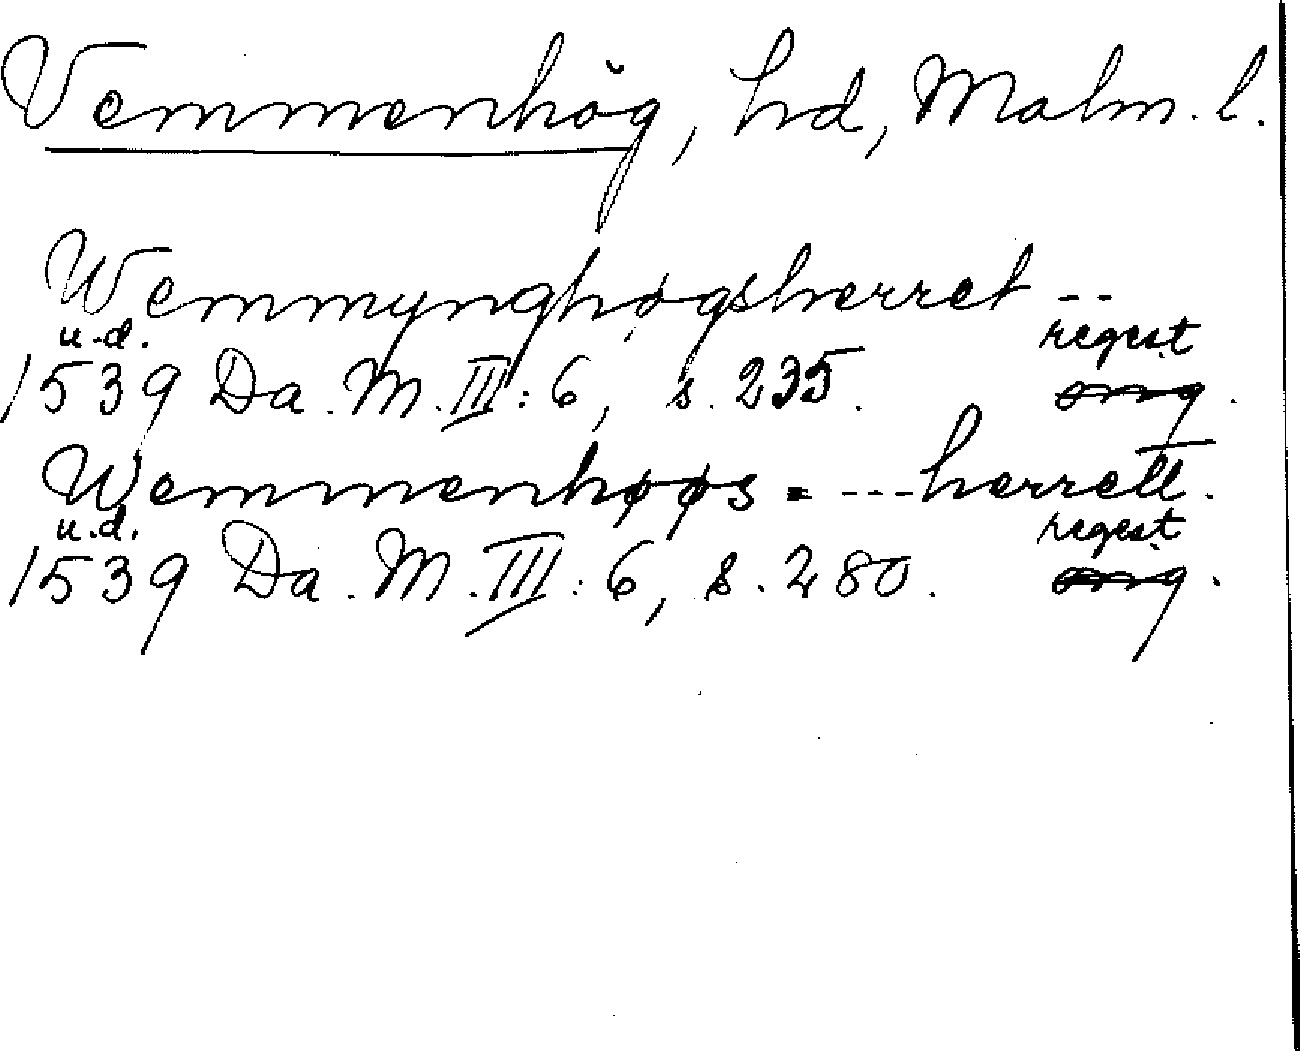 Vemmenhög, hd, Malm. l.
Wemmynghøgsherret --
u.d. regest
1539 Da. M. III: 6, s. 235. org.
Wemmenhøøs = --- herrett.
u.d. regest
1539 Da. M. III: 6, s. 280. org.